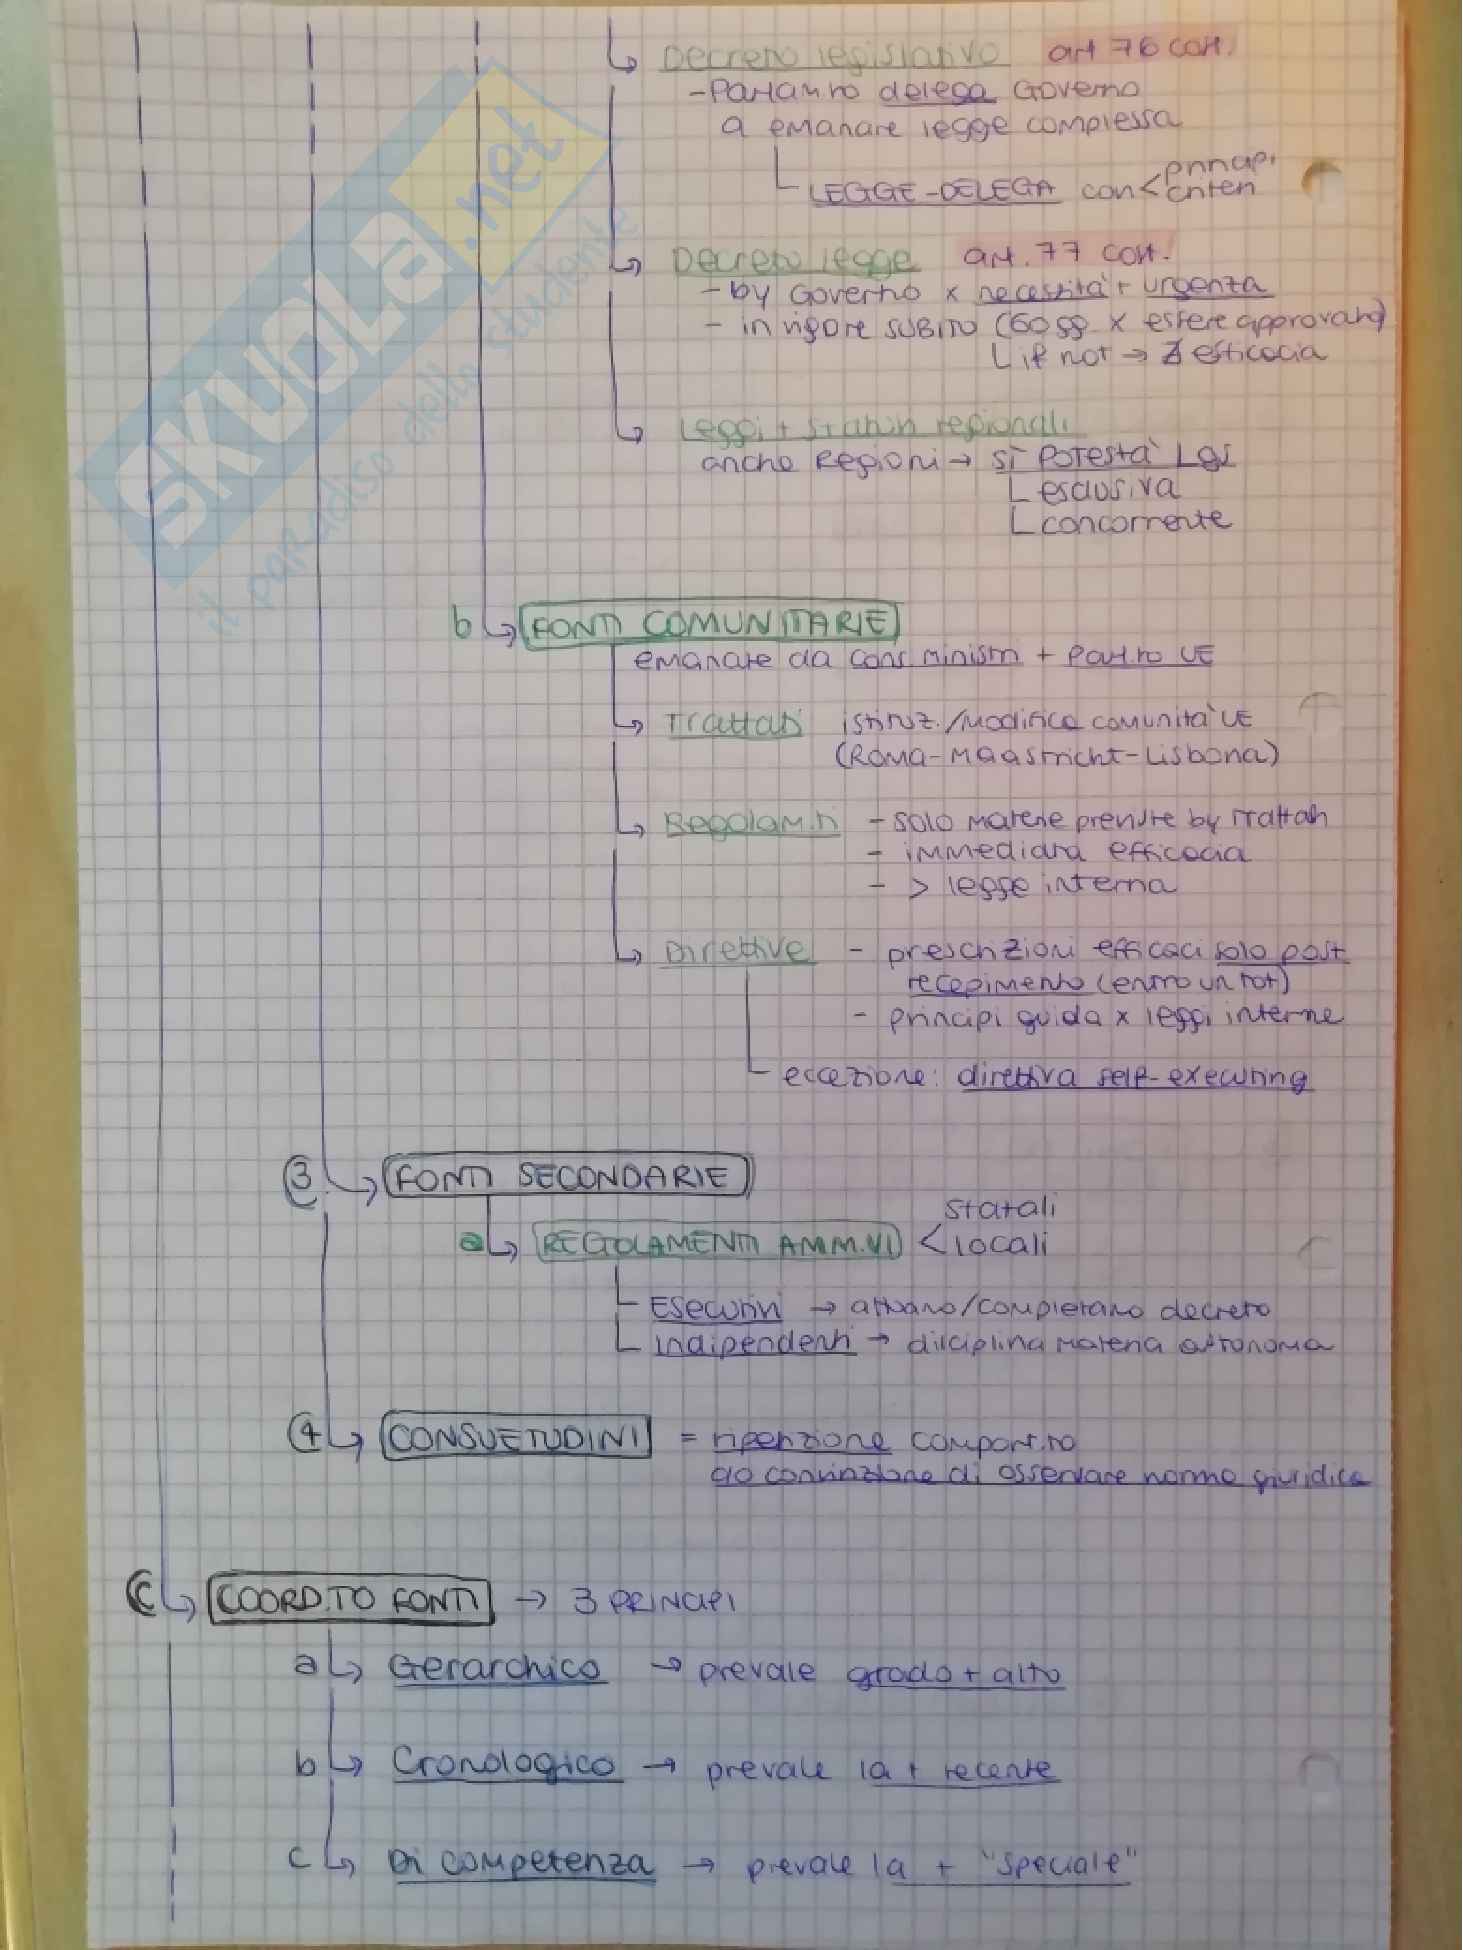 ↳ Decreto legislativo art 76 cost.
- Parlam.to delega Governo
a emanare legge complessa
LEGGE-DELEGA con < principi
criteri
↳ Decreto legge art. 77 cost.
- by Governo x necessità + urgenza
- in vigore SUBITO (60 gg x essere approvato)
if not → ∄ efficacia
↳ Leggi + statuti regionali
anche Regioni → sì POTESTA' LGS
esclusiva
concorrente
b ↳ FONTI COMUNITARIE
emanate da cons. ministri + parl.to UE
↳ Trattati istituz./modifica comunità UE
(Roma-Maastricht-Lisbona)
↳ Regolam.ti - solo materie previste by trattati
- immediata efficacia
- > legge interna
↳ Direttive - prescrizioni efficaci solo post
recepimento (entro un tot)
- principi guida x leggi interne
eccezione: direttiva self-executing
3 ↳ FONTI SECONDARIE
statali
a ↳ REGOLAMENTI AMM.VI < locali
Esecutivi → attuano/completano decreto
Indipendenti → disciplina materia autonoma
4 ↳ CONSUETUDINI = ripetizione comport.to
da convinzione di osservare norma giuridica
C ↳ COORD.TO FONTI → 3 PRINCIPI
a ↳ Gerarchico → prevale grado + alto
b ↳ Cronologico → prevale la + recente
c ↳ Di competenza → prevale la + "speciale"
SKUOLA.net
il paradiso dello studente